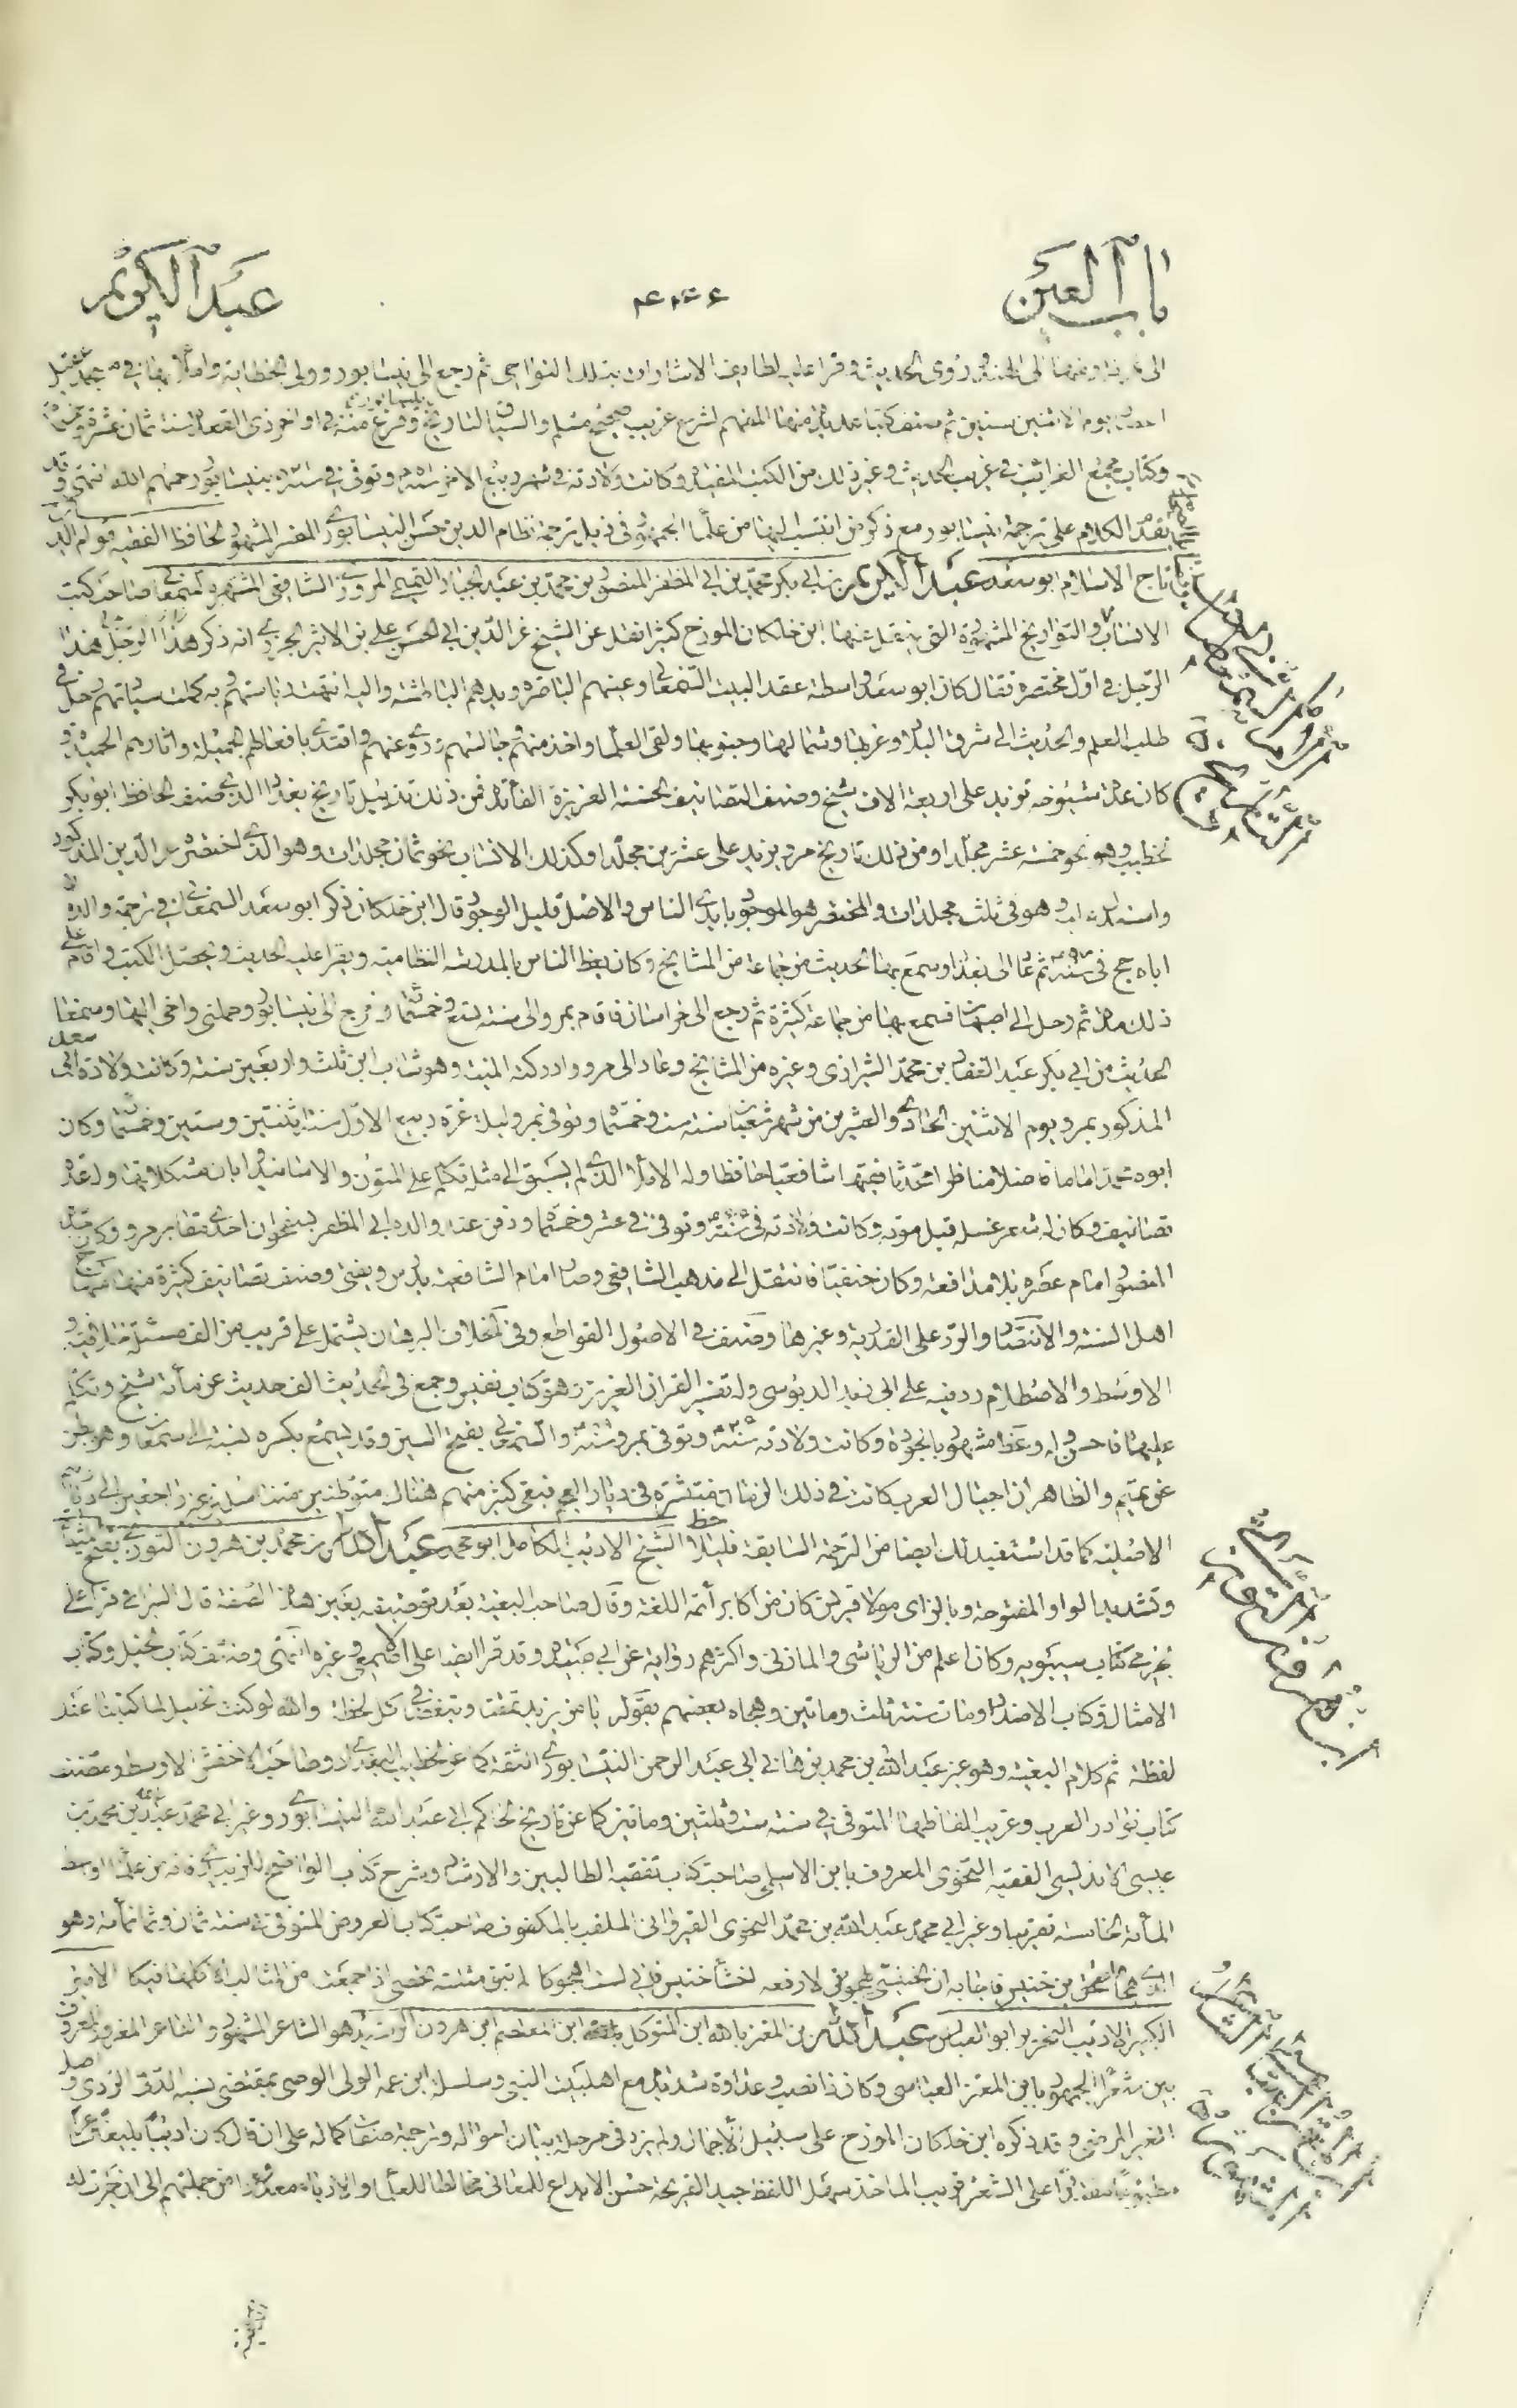 باب العين
عبد الكريم
الى غزنة ومنها الى الهند وروى الحديث وقرا عليه لطايف الاشارات بتلك النواحي ثم رجع الى نيشابور وولى الخطابة واملا بها في مسجد عقيل
يوم الاثنين سنين ثم صنف كتبا عديدة منها المفهم لشرح غريب صحيح مسلم والسياق لتاريخ نيشابور وفرغ منه في اواخر ذى القعدة سنة ثمان عشرة وخمسمائة
وكتاب مجمع الغرائب في غريب الحديث وغير ذلك من الكتب المفيدة وكانت ولادته في شهر ربيع الاخر سنة وتوفى في سنة بنيشابور رحمهم الله انتهى وقد
تقدم الكلام على ترجمة نيشابور مع ذكر من انتسب اليها من علماء الجمهور في ذيل ترجمة نظام الدين حسن النيسابورى المفسر المشهور الحافظ الفقيه قوام الدين
تاج الاسلام ابو سعد عبد الكريم بن ابي بكر محمد بن ابي المظفر المنصور بن محمد بن عبد الجبار التميمي المروزى الشافعي المشهور بالسمعاني صاحب كتب
الانساب والتواريخ المشهورة التي ينقل عنها ابن خلكان المورخ كثيرا نقل عن الشيخ عز الدين ابي الحسن علي بن الاثير الجزري انه ذكر هذا الرجل هذا
الرجل في اول مختصره فقال كان ابو سعد واسطة عقد البيت السمعاني وعينهم الباصرة ويدهم الباطشة واليه انتهت رياستهم وبه كملت سيادتهم رحل في
طلب العلم والحديث الى شرق البلاد وغربها وشمالها وجنوبها ولقى العلماء واخذ منهم وجالسهم وروى عنهم واقتدى بافعالهم الجميلة واثارهم الحميدة و
كان عدة شيوخه تزيد على اربعة الاف شيخ وصنف التصانيف الحسنة الغزيرة الفائدة فمن ذلك تذييل تاريخ بغداد الذي صنفه الحافظ ابو بكر
الخطيب وهو نحو خمسة عشر مجلدا ومن ذلك تاريخ مرو يزيد على عشرين مجلدا وكذلك الانساب نحو ثمان مجلدات وهو الذي اختصره عز الدين المذكور
واستدرك عليه وهو في ثلث مجلدات والمختصر هو الموجود بايدى الناس والاصل قليل الوجود قال ابن خلكان ذكر ابو سعد السمعاني في ترجمة والده ان
اباه حج في سنة ثم عاد الى بغداد وسمع بها الحديث من جماعة من المشايخ وكان يعظ الناس بالمدرسة النظامية ويقرا عليه الحديث ويحصل الكتب واقام على
ذلك مدة ثم رحل الى اصبهان فسمع بها من جماعة كثيرة ثم رجع الى خراسان فاقام بمرو الى سنة تسع وخمسمائة وخرج الى نيشابور وحملني واخي اليها وسمعنا
الحديث من ابي بكر عبد الغفار بن محمد الشيرازى وغيره من المشايخ وعاد الى مرو وادركته المنية وهو شاب ابن ثلث واربعين سنة وكانت ولادة ابي سعد
المذكور بمرو يوم الاثنين الحادى والعشرين من شهر شعبان سنة ست وخمسمائة وتوفى بمرو ليلة غرة ربيع الاول سنة اثنتين وستين وخمسمائة وكان
ابوه محمد اماما فاضلا مناظرا محدثا فقيها شافعيا حافظا وله الاملاء الذى لم يسبق الى مثله تكلم على المتون والاسانيد وابان مشكلاتها وله عدة
تصانيف وكان له شعر غسله قبل موته وكانت ولادته في سنة وتوفى في عشر وخمسمائة ودفن عند والده ابي المظفر بسفحوان احدى مقابر مرو وكان جده
المنصور امام عصره بلا مدافعة وكان حنفيا فانتقل الى مذهب الشافعي وصار امام الشافعية يدرس ويفتي وصنف تصانيف كثيرة منها منهاج
اهل السنة والانتصار والرد على القدرية وغيرها وصنف في الاصول القواطع وفي الخلاف البرهان يشتمل على قريب من الف مسئلة خلافية و
الاوسط والاصطلام رد فيه على ابي زيد الدبوسي وله تفسير القران العزيز وهو كتاب نفيس وجمع في الحديث الف حديث عن مأئة شيخ وتكلم
عليها فاحسن وله وعظ مشهور بالجودة وكانت ولادته سنة وتوفى بمرو سنة والسمعاني بفتح السين وقد يسمع بكسره نسبة الى سمعان وهو بطن
من تميم والظاهر ان اجيال العرب كانت في ذلك الزمان منتشرة في ديار العجم فبقى كثير منهم هنالك متوطنين متناسلين غير راجعين الى ديارهم
الاصلية كما قد استفيد ذلك ايضا من الترجمة السابقة فليلاحظ الشيخ الاديب الكامل ابو محمد عبد الله بن محمد بن هرون التوزي بفتح التاء
وتشديد الواو المفتوحة وبالزاى مولا قريش كان من اكابر أئمة اللغة وقال صاحب البغية بعد توصيفه بعين هذه الصفة قال السيرافي قرا على
الجرمي كتاب سيبويه وكان اعلم من الرياشي والمازني واكثرهم رواية عن ابي عبيدة وقد قرا ايضا على الاصمعي وغيره انتهى وصنف كتاب الخيل وكتاب
الامثال وكتاب الاضداد ومات سنة ثلث وماتين وهجاه بعضهم بقوله يا من يزيد تمقتا وتبغضا في كل لحظة والله لو كنت الخليل لما كتبنا عنك
لفظة تم كلام البغية وهو غير عبد الله بن محمد بن هاني ابي عبد الرحمن النيشابورى الثقة كما عن الخطيب البغدادى وصاحب الاخفش الاوسط ومصنف
كتاب نوادر العرب وغريب الفاظها المتوفى في سنة ست وثلثين وماتين كما عن تاريخ الحاكم ابي عبد الله النيشابورى وغير ابي محمد عبد الله بن محمد بن
عيسى الاندلسي الفقيه النحوى المعروف بابن الاسلمي صاحب كتاب تفقيه الطالبين والارشاد وشرح كتاب الواضح للزبيدى فانه من علماء اوسط
المأئة الخامسة تقريبا وغير ابي محمد عبد الله بن محمد النحوى القيروانى الملقب بالمكفوف صاحب كتاب العروض المتوفى في سنة ثمان وثمانمائة وهو
الذى هجا اسحق بن خنيس فاجابه ان الخنيسي يهجوني لارفعه اخسأ خنيس فاني لست اهجوكا لم تبق مثلبة تحصى اذا جمعت من المثالب الا كلها فيكا الامير
الكبير الاديب النحرير ابو العباس عبد الله بن المعتز بالله ابن المتوكل بالله ابن المعتصم ابن هرون الرشيد هو الشاعر المشهور والشاعر المغرور المعروف
بين شعراء الجمهور بابن المعتز العباسي وكان ذا نصب وعداوة شديدة مع اهل بيت النبي وسلسلة ابن عمه الولى الوصي بمقتضى نسبه الدنى الردى واصله
الغير المرضي وقد ذكره ابن خلكان المورخ على سبيل الاجمال ولم يزد في مرحلة بيان احواله وترجمة صفات كماله على ان قال كان اديبا بليغا شاعرا
مطبوعا مقتدرا على الشعر قريب الماخذ سهل اللفظ جيد القريحة حسن الابداع للمعانى مخالطا للعلماء والادباء معدودا من جملتهم الى ان جرت له